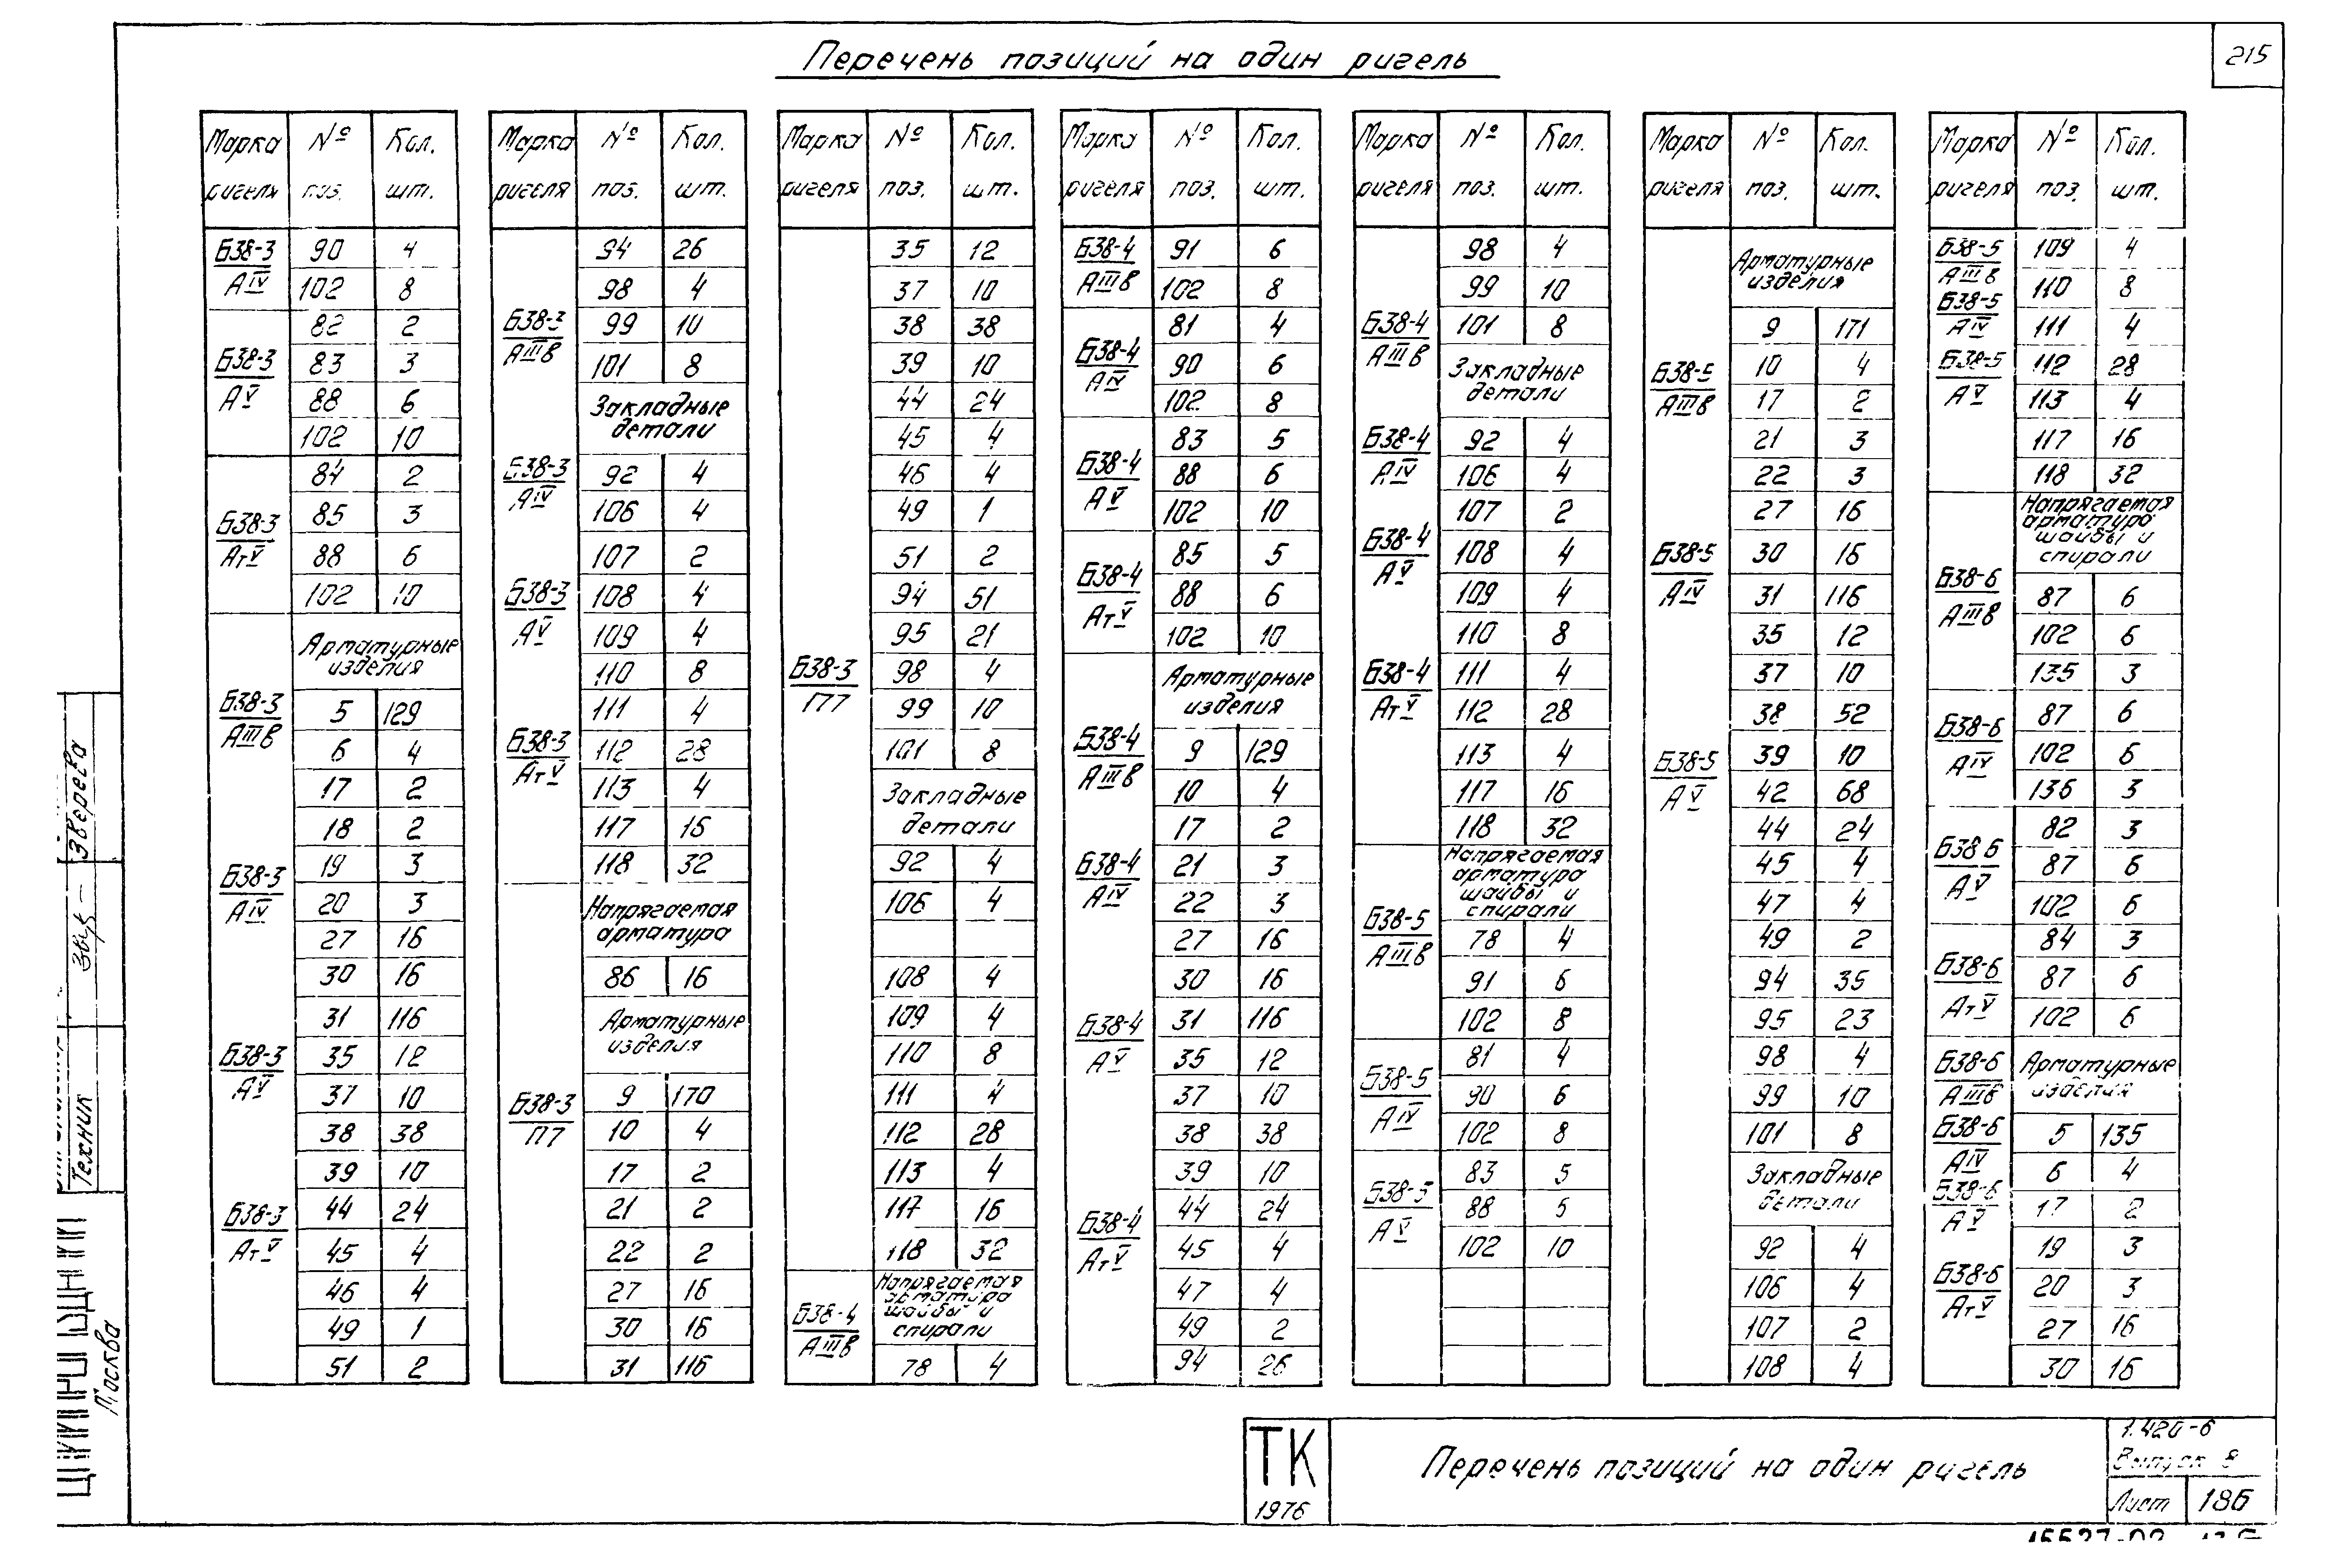 Перечень позиций на один ригель
215
Марка ригеля № поз. Кол. шт.
Б38-3 АIV
90 4
102 8
Б38-3 АV
82 2
83 3
88 6
102 10
Б38-3 АтV
84 2
85 3
88 6
102 10
Б38-3 АIIIв
Б38-3 АIV
Б38-3 АV
Б38-3 АтV
Арматурные изделия
5 129
6 4
17 2
18 2
19 3
20 3
27 16
30 16
31 116
35 12
37 10
38 38
39 10
44 24
45 4
46 4
49 1
51 2
Марка ригеля № поз. Кол. шт.
Б38-3 АIIIв
Б38-3 АIV
Б38-3 АV
Б38-3 АтV
94 26
98 4
99 10
101 8
Закладные детали
92 4
106 4
107 2
108 4
109 4
110 8
111 4
112 28
113 4
117 16
118 32
Б38-3 П7
Напрягаемая арматура
86 16
Арматурные изделия
9 170
10 4
17 2
21 2
22 2
27 16
30 16
31 116
Марка ригеля № поз. Кол. шт.
Б38-3 П7
35 12
37 10
38 38
39 10
44 24
45 4
46 4
49 1
51 2
94 51
95 21
98 4
99 10
101 8
Закладные детали
92 4
106 4
108 4
109 4
110 8
111 4
112 28
113 4
117 16
118 32
Б38-4 АIIIв
Напрягаемая арматура шайбы и спирали
78 4
Марка ригеля № поз. Кол. шт.
Б38-4 АIIIв
91 6
102 8
Б38-4 АIV
81 4
90 6
102 8
Б38-4 АV
83 5
88 6
102 10
Б38-4 АтV
85 5
88 6
102 10
Б38-4 АIIIв
Б38-4 АIV
Б38-4 АV
Б38-4 АтV
Арматурные изделия
9 129
10 4
17 2
21 3
22 3
27 16
30 16
31 116
35 12
37 10
38 38
39 10
44 24
45 4
47 4
49 2
94 26
Марка ригеля № поз. Кол. шт.
Б38-4 АIIIв
Б38-4 АIV
Б38-4 АV
Б38-4 АтV
98 4
99 10
101 8
Закладные детали
92 4
106 4
107 2
108 4
109 4
110 8
111 4
112 28
113 4
117 16
118 32
Б38-5 АIIIв
Напрягаемая арматура шайбы и спирали
78 4
91 6
102 8
Б38-5 АIV
81 4
90 6
102 8
Б38-5 АV
83 5
88 5
102 10
Марка ригеля № поз. Кол. шт.
Б38-5 АIIIв
Б38-5 АIV
Б38-5 АV
Арматурные изделия
9 171
10 4
17 2
21 3
22 3
27 16
30 16
31 116
35 12
37 10
38 52
39 10
42 68
44 24
45 4
47 4
49 2
94 35
95 23
98 4
99 10
101 8
Закладные детали
92 4
106 4
107 2
108 4
Марка ригеля № поз. Кол. шт.
Б38-5 АIIIв
Б38-5 АIV
Б38-5 АV
109 4
110 8
111 4
112 28
113 4
117 16
118 32
Б38-6 АIIIв
Напрягаемая арматура шайбы и спирали
87 6
102 6
135 3
Б38-6 АIV
87 6
102 6
136 3
Б38 6 АV
82 3
87 6
102 6
Б38-6 АтV
84 3
87 6
102 6
Б38-6 АIIIв
Б38-6 АIV
Б38-6 АV
Б38-6 АтV
Арматурные изделия
5 135
6 4
17 2
19 3
20 3
27 16
30 16
Зверева
Техник
Москва
ТК
1976
Перечень позиций на один ригель
1.420-6
Выпуск 8
Лист 186